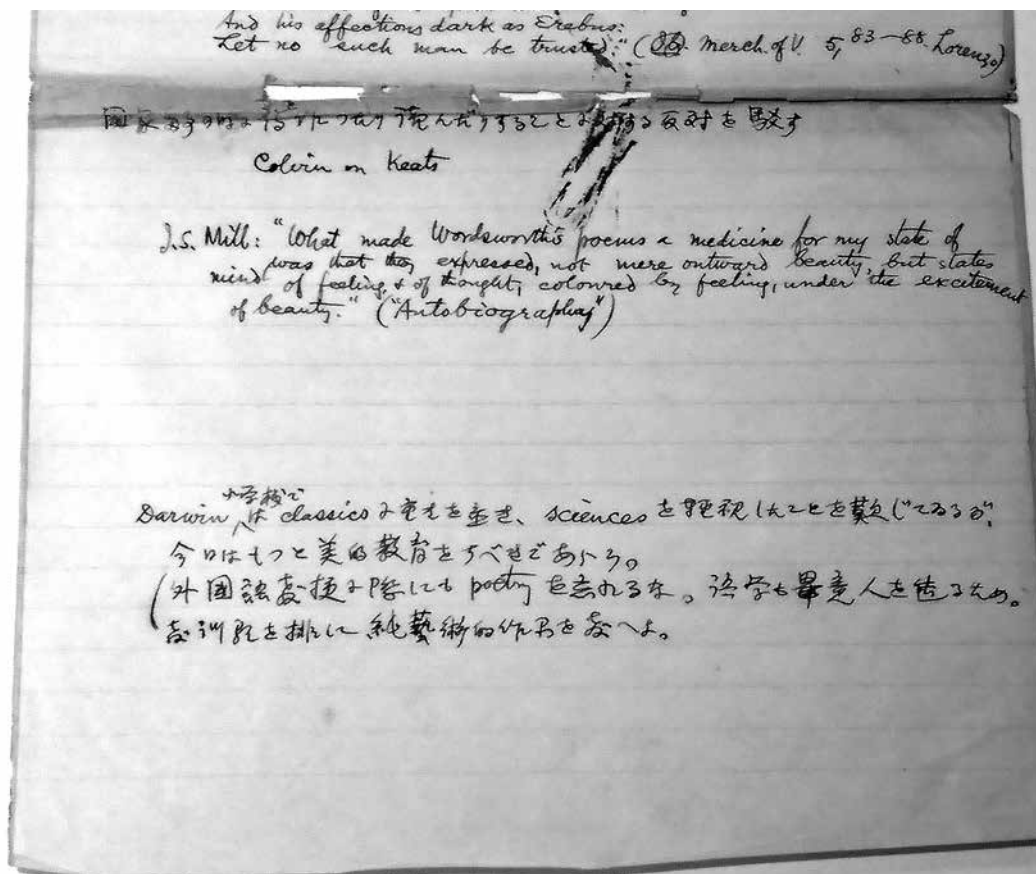 And his affections dark as Erebus:
Let no such man be trusted." (Merch. of V. 5, 83–88. Lorenzo)
国家多事の時に詩を作つたり読んだりすることに対する反対を駁す
Colvin on Keats
J.S. Mill: "What made Wordsworth's poems a medicine for my state of
mind was that they expressed, not mere outward beauty, but states
of feeling, & of thought, coloured by feeling, under the excitement
of beauty." ("Autobiography")
小学校で
Darwin は classics に重きを置き、sciences を軽視したことを難じてゐるが、
今日はもつと美的教育をすべきであらう。
(外国語教授の際にも poetry を忘れるな。語学も畢竟人を造るため。
教訓談を排して純藝術的作品を教へよ。